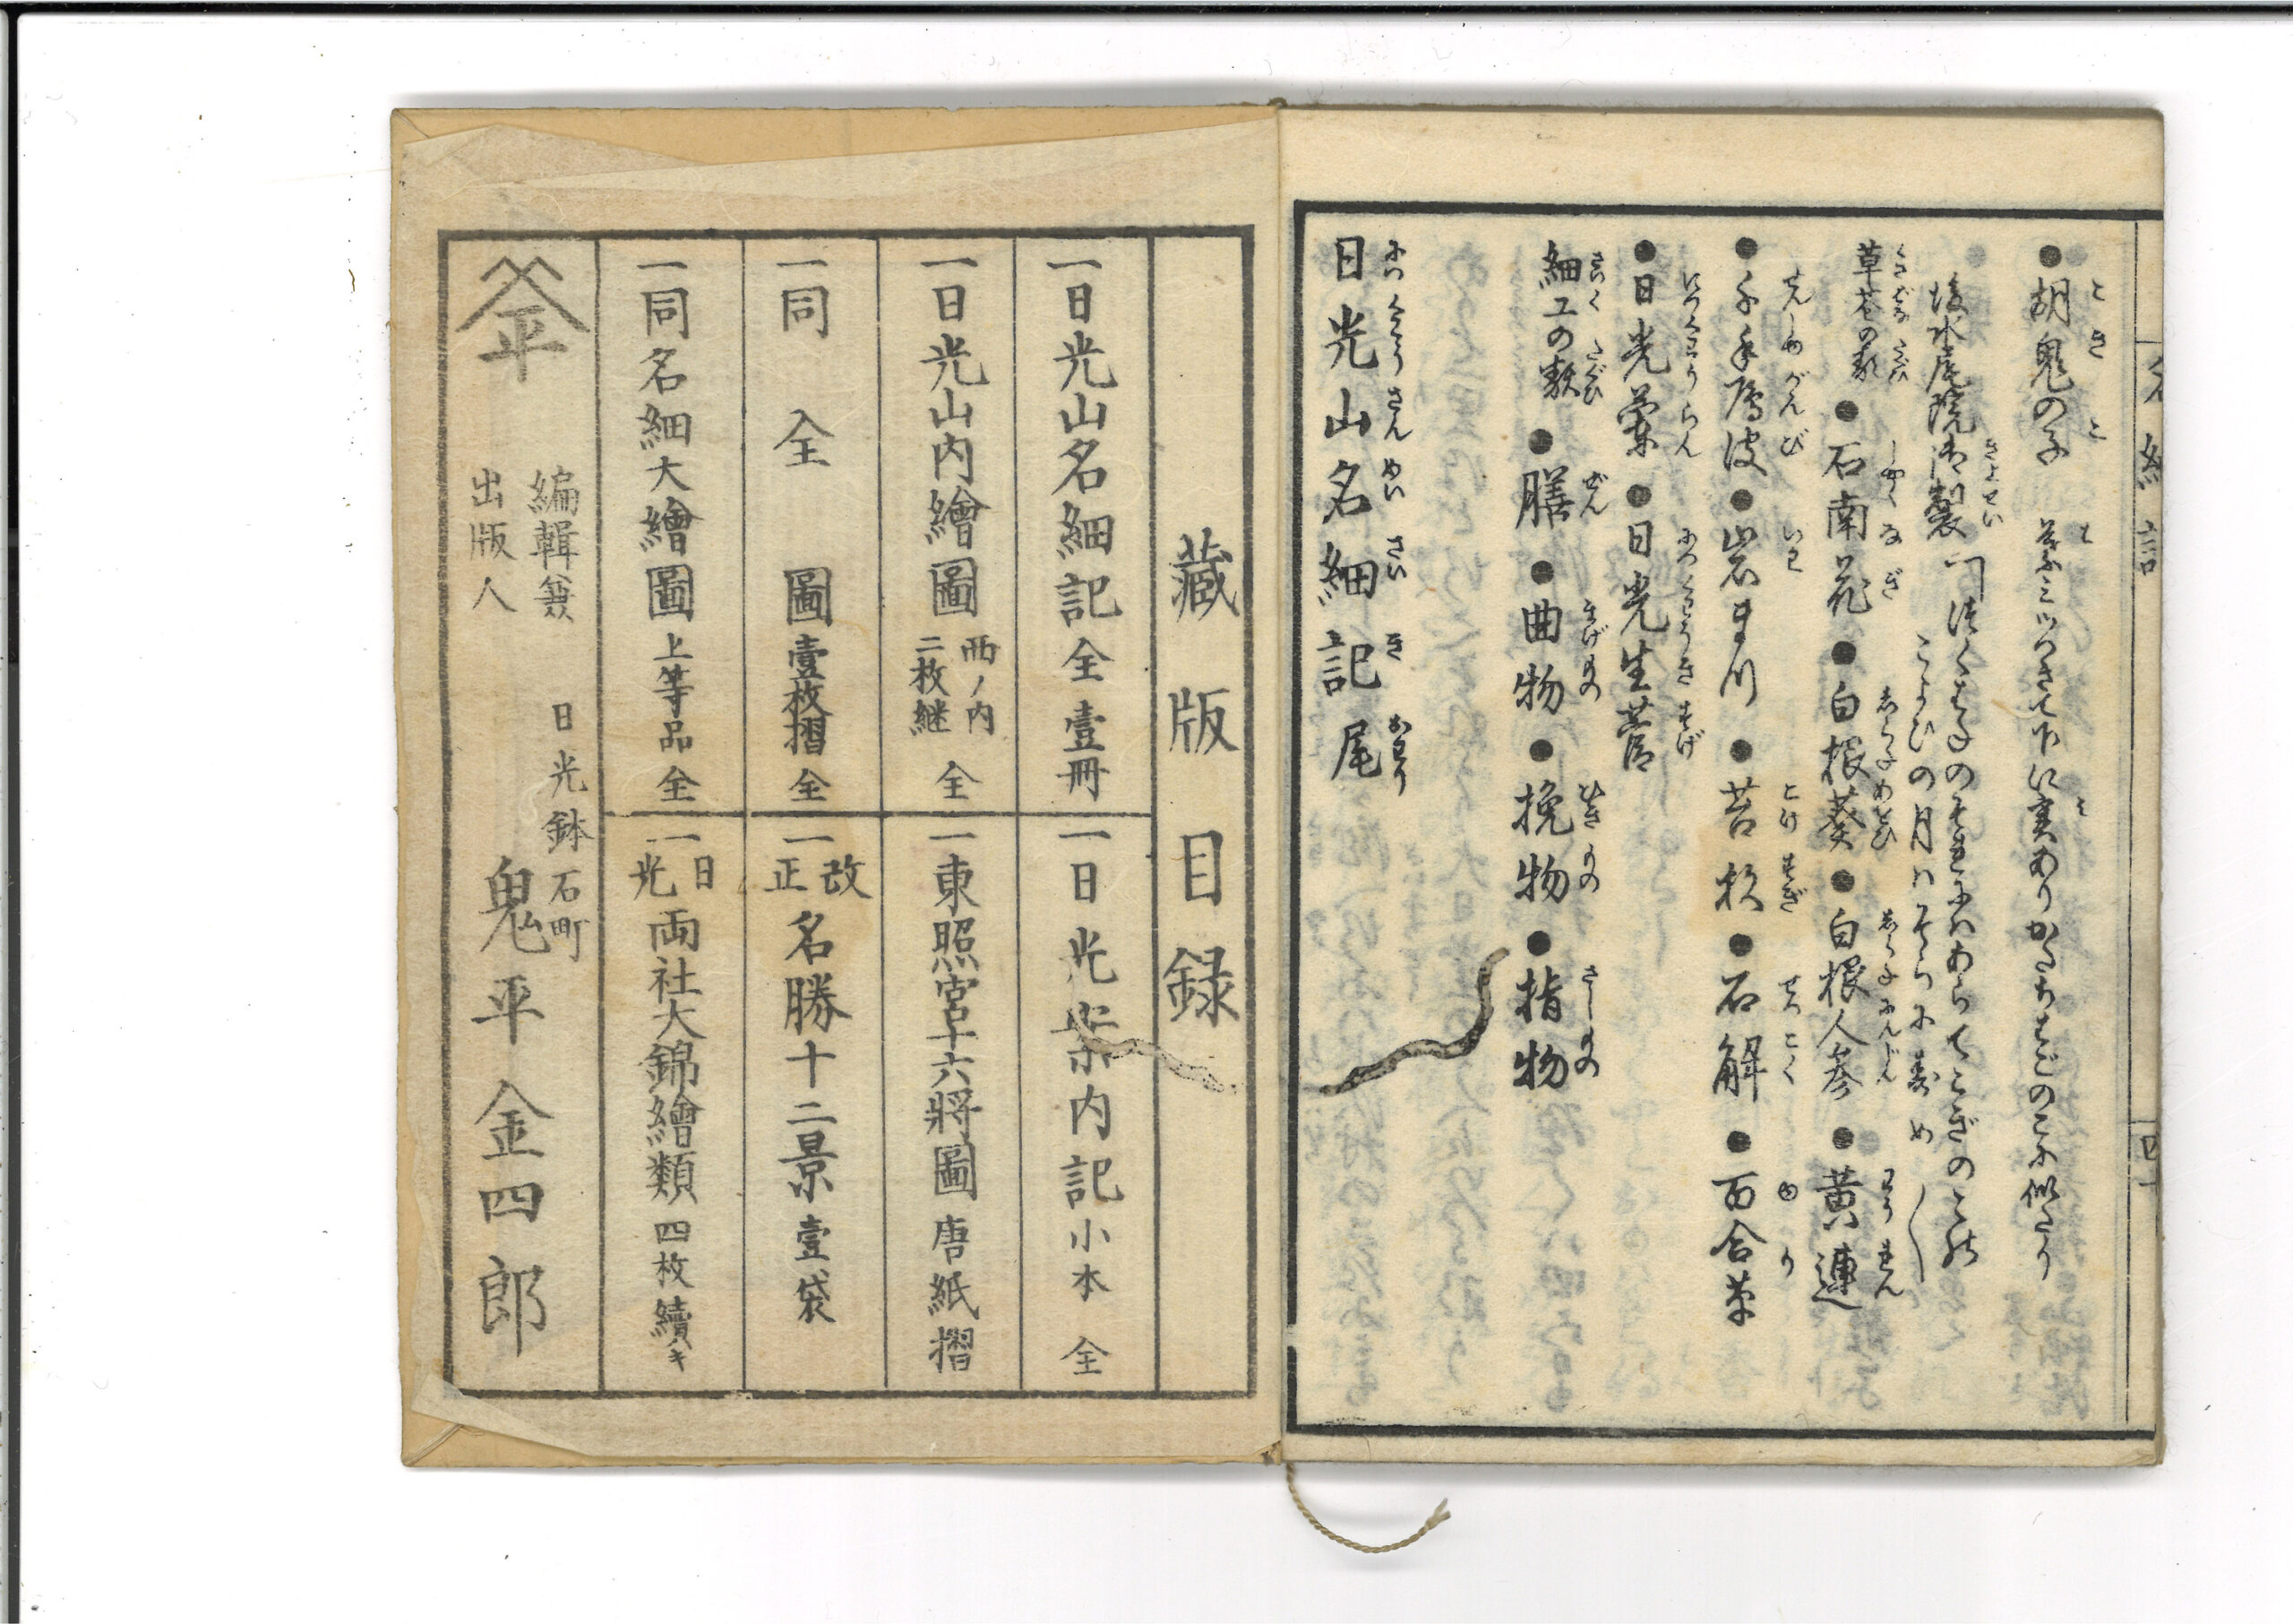 名細記
四十
●胡鬼の子 葉三ツつきて下に実ありかたちはごのこに似たり
後水尾院御製
こよひの月はそらにすめ
草花の類 ●石南花 ●白根葵 ●白根人参 ●黄連
●千手雁皮 ●岩まつ ●苔杉 ●石斛 ●百合草
●日光蘭 ●日光生菅
細工の類 ●膳 ●曲物 ●挽物 ●指物
日光山名細記尾
藏版目録
一日光山名細記全壹冊
一日光案内記小本 全
一日光山内繪圖 西ノ内二枚継 全
一東照宮十六將圖唐紙摺
一同 全 圖壹枚摺全
一改正名勝十二景壹袋
一同名細大繪圖上等品全
一日光両社大錦繪類四枚續キ
平
編輯兼
出版人
日光鉢石町
鬼平金四郎